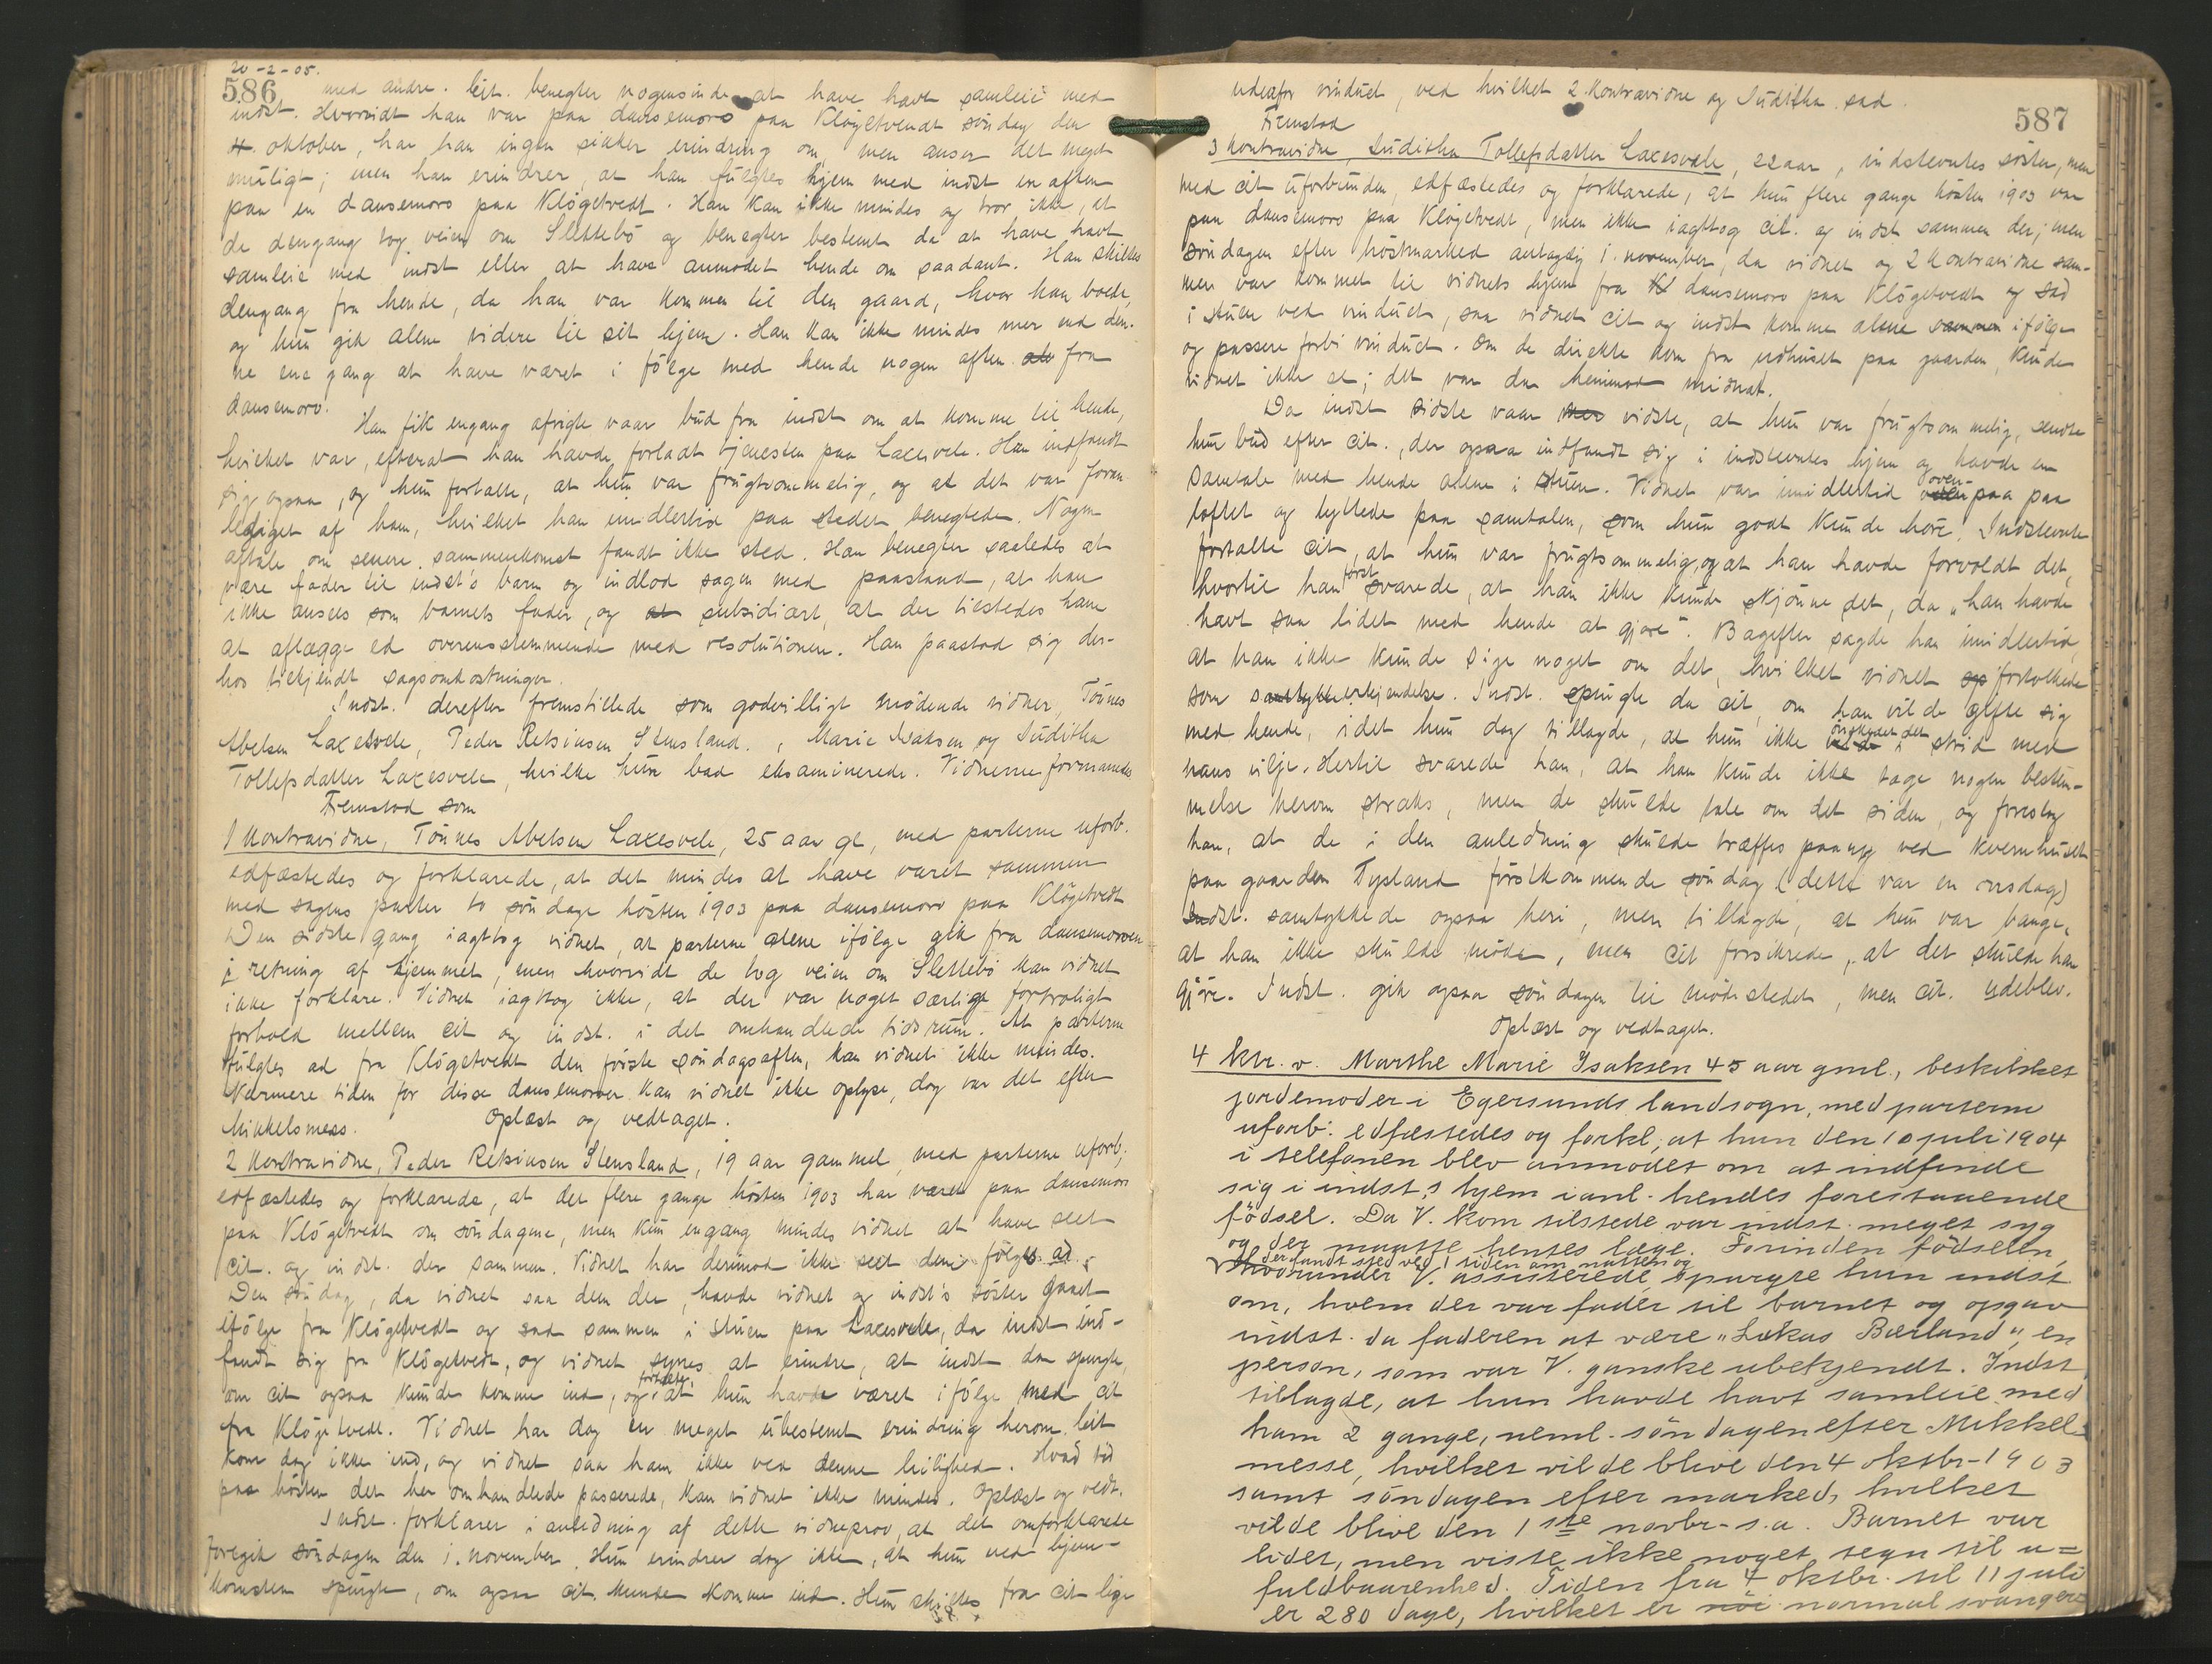 20-2-05.
586
med andre. Cit. benegter nogensinde at have havt samleie med
indst. Hvorvidt han var paa dansemoro paa Klögetvedt söndag den
4. oktober, har han ingen sikker erindring om, men anser det meget
muligt; men han erindrer, at han fulgtes hjem med indst en aften
paa en dansemoro paa Klögetvedt. Han kan ikke mindes og tror ikke, at
de dengang tog veien om Slettebö og benegter bestemt da at have havt
samleie med indst eller at have anmodet hende om saadant. Han skiltes
dengang fra hende, da han var kommen til den gaard, hvor han boede,
og hun gik alene videre til sit hjem. Han kan ikke mindes mer end den-
ne ene gang at have været i fölge med hende nogen aften fra
dansemoro.
Han fik engang afvigte vaar bud fra indst om at komme til hende,
hvilket var, efterat han havde forladt tjenesten paa Laxesvele. Han indfandt
sig ogsaa, og hun fortalte, at hun var frugtsommelig, og at det var foran
lediget af ham, hvilket han imidlertid paa stedet benegtede. Nogen
aftale om senere sammenkomst fandt ikke sted. Han benegter saaledes at
være fader til indst's barn og indlod sagen med paastand, at han
ikke ansees som barnets fader, og at subsidiært, at der tilstedes ham
at aflægge ed overensstemmende med resolutionen. Han paastod sig der-
hos tilkjendt sagsomkostninger.
Indst. derefter fremstillede som godvilligt mödende vidner, Tönnes
Abelsen Laxesvele, Peder Retsiusen Stensland, Marie Isaksen og Juditha
Tollefsdatter Laxesvele, hvilke hun bad eksaminerede. Vidnerne formanedes
Fremstod som
1 Kontravidne, Tönnes Abelsen Laxesvele, 25 aar gl, med parterne uforb.
edfæstedes og forklarede, at det mindes at have været sammen
med sagens parter to söndage hösten 1903 paa dansemoro paa Klögetvedt
Den sidste gang iagttog vidnet, at parterne alene ifölge gik fra dansemoroen
i retning af hjemmet, men hvorvidt de tog veien om Slettebö kan vidnet
ikke forklare. Vidnet iagttog ikke, at der var noget særlige fortroligt
forhold mellem cit og indst. i det omhandlede tidsrum. At parterne
fulgtes ad fra Klögetvedt den förste söndagsaften, kan vidnet ikke mindes.
Nærmere tiden for disse dansemoroer kan vidnet ikke oplyse, dog var det efter
Mikkelsmess. Oplæst og vedtaget.
2 Kontravidne, Peder Retsiusen Stensland, 19 aar gammel, med parterne uforb;
edfæstedes og forklarede, at det flere gange hösten 1903 har været paa dansemoro
paa Klögetvedt om söndagene, men kun engang mindes vidnet at have seet
cit. og indst. der sammen. Vidnet har derimod ikke seet dem fölges ad.
Den söndag, da vidnet saa dem der, havde vidnet og indst's söster gaaet
ifölge fra Klögetvedt og sad sammen i stuen paa Laxesvele, da indst ind-
fandt sig fra Klögetvedt, og vidnet synes at erindre, at indst da spurgte,
om cit ogsaa kunde komme ind, og fortalte, at hun havde været ifölge med cit
fra Klögetvedt. Vidnet har dog en meget ubestemt erindring herom. Cit
kom dog ikke ind, og vidnet saa ham ikke ved denne leilighed. Hvad tid
paa hösten det her omhandlede passerede, kan vidnet ikke mindes. Oplæst og vedt.
Indst. forklarer i anledning af dette vidneprov, at det omforklarede
foregik söndagen den 1. november. Hun erindrer dog ikke, at hun ved hjem-
komsten spurgte, om ogsaa cit. kunde komme ind. Hun skiltes fra cit lige
587
udenfor vinduet, ved hvilket 2. Kontravidne og Juditha sad.
Fremstod
3 Kontravidne, Juditha Tollefsdatter Laxesvele, 22 aar, indstevntes söster, men
med cit uforbunden, edfæstedes og forklarede, at hun flere gange hösten 1903 var
paa dansemoro paa Klögetvedt, men ikke iagttog cit. og indst sammen der; men
söndagen efter höstmarked antagelig 1. november, da vidnet og 2 Kontravidne sam-
men var kommet til vidnets hjem fra dansemoro paa Klögetvedt og sad
i stuen ved vinduet, saa vidnet cit og indst komme alene sammen ifölge
og passere forbi vinduet. Om de direkte kom fra udhuset paa gaarden, kunde
vidnet ikke se; det var da henimod midnat.
Da indst sidste vaar vidste, at hun var frugtsommelig, sendte
hun bud efter cit., der ogsaa indfandt sig i indstevntes hjem og havde en
samtale med hende alene i stuen. Vidnet var imidlertid oven-paa paa
loftet og lyttede paa samtalen, som hun godt kunde höre. Indstevnte
fortalte cit, at hun var frugtsommelig, og at han havde forvoldt det,
hvortil han först svarede, at han ikke kunde skjönne det, da "han havde
havt saa lidet med hende at gjöre". Bagefter sagde han imidlertid,
at han ikke kunde sige noget om det, hvilket vidnet op fortolkede
som samtykke erkjendelse. Indst. spurgte da cit, om han vilde gifte sig
med hende, idet hun dog tillagde, at hun ikke önskedet det i strid med
hans vilje. Hertil svarede han, at han kunde ikke tage nogen bestem-
melse herom straks, men de skulde tale om det siden, og foreslog
han, at de i den anledning skulde træffes paany ved kvernhuset
paa gaarden Tysland förstkommende söndag (dette var en onsdag)
Indst. samtykkede ogsaa heri, men tillagde, at hun var bange,
at han ikke skulde möde, men cit forsikrede, at det skulde han
gjöre. Indst. gik ogsaa söndagen til mödestedet, men cit. udeblev.
Oplæst og vedtaget.
4 ktr. v. Marthe Marie Isaksen 45 aar gml., beskikket
jordemoder i Egersunds landsogn, med parterne
uforb. edfæstedes og forkl; at hun den 10 juli 1904
i telefonen blev anmodet om at indfinde
sig i indst,s hjem i anl. hendes forestaaende
födsel. Da V. kom tilstede var indst. meget syg
og der maatte hentes læge. Forinden födselen,
der fandt sted ved 1 tiden om natten og
hvorunder V. assisterede, spurgte hun indst
om, hvem der var fader til barnet og opgav
indst. da faderen at være "Lukas Bærland", en
person, som var V. ganske ubekjendt. Indst
tillagde, at hun havde havt samleie med
ham 2 gange, neml. söndagen efter Mikkels-
messe, hvilket vilde blive den 4 oktbr - 1903
samt söndagen efter marked, hvilket
vilde blive den 1ste novbr - s.a. Barnet var
lidet, men viste ikke noget tegn til u=
fuldbaarenhed. Tiden fra 4 oktbr. til 11 juli
er 280 dage, hvilket er normal svanger=